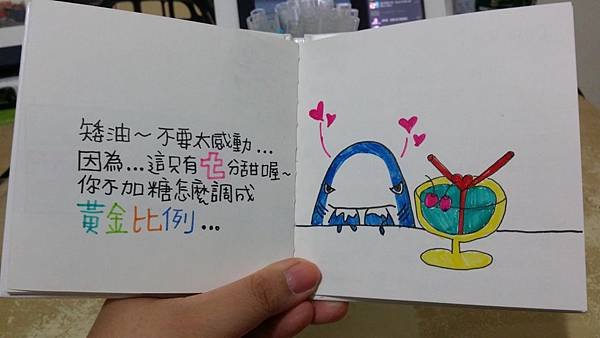 矮油～不要太感動...
因為...這只有七分甜喔~
你不加糖怎麼調成
黃金比例...